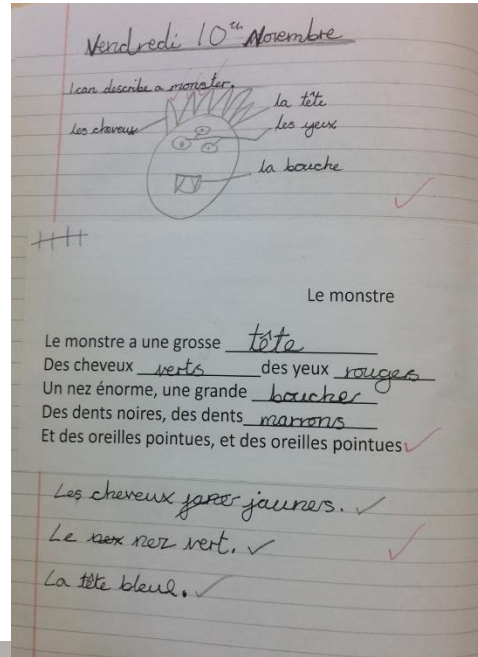 Vendredi 10th Novembre
I can describe a monster.
la tête
les cheveux
les yeux
la bouche
Le monstre
Le monstre a une grosse tête
Des cheveux verts des yeux rouges
Un nez énorme, une grande bouche
Des dents noires, des dents marrons
Et des oreilles pointues, et des oreilles pointues
Les cheveux jaunes.
Le nez vert.
La tête bleue.